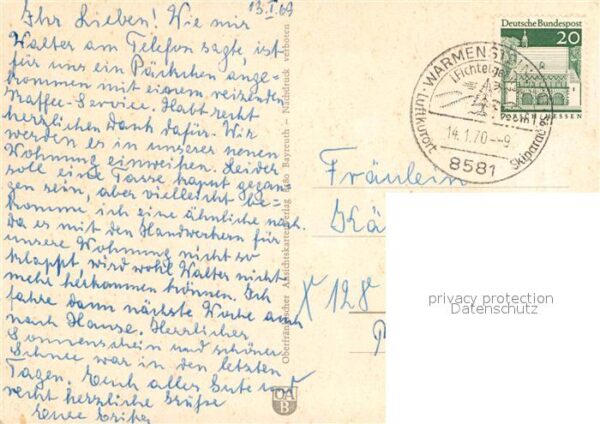 13.I.69
Ihr Lieben! Wie mir
Walter am Telefon sagte, ist
für uns ein Päckchen ange-
kommen mit einem reizenden
Kaffee-Service. Habt recht
herzlichen Dank dafür. Wir
werden es in unserer neuen
Wohnung einweihen. Leider
soll eine Tasse kaputt gegan-
gen sein, aber vielleicht be-
komme ich eine ähnliche nach.
Da es mit den Handwerkern für
unsere Wohnung nicht so
klappt wird wohl Walter nicht
mehr herkommen können. Ich
fahre dann nächste Woche auch
nach Hause. Herrlicher
Sonnenschein und schöner
Schnee war in den letzten
Tagen. Euch alles Gute und
recht herzliche Grüße
Oberfränkischer Ansichtskartenverlag 8580 Bayreuth - Nachdruck verboten
OA
B
Deutsche Bundespost
20
HESSEN
WARMENST
(Fichtelge
Luftkurort
14.1.70--9
8581
Fräulein
Kä
X 128
privacy protection
Datenschutz